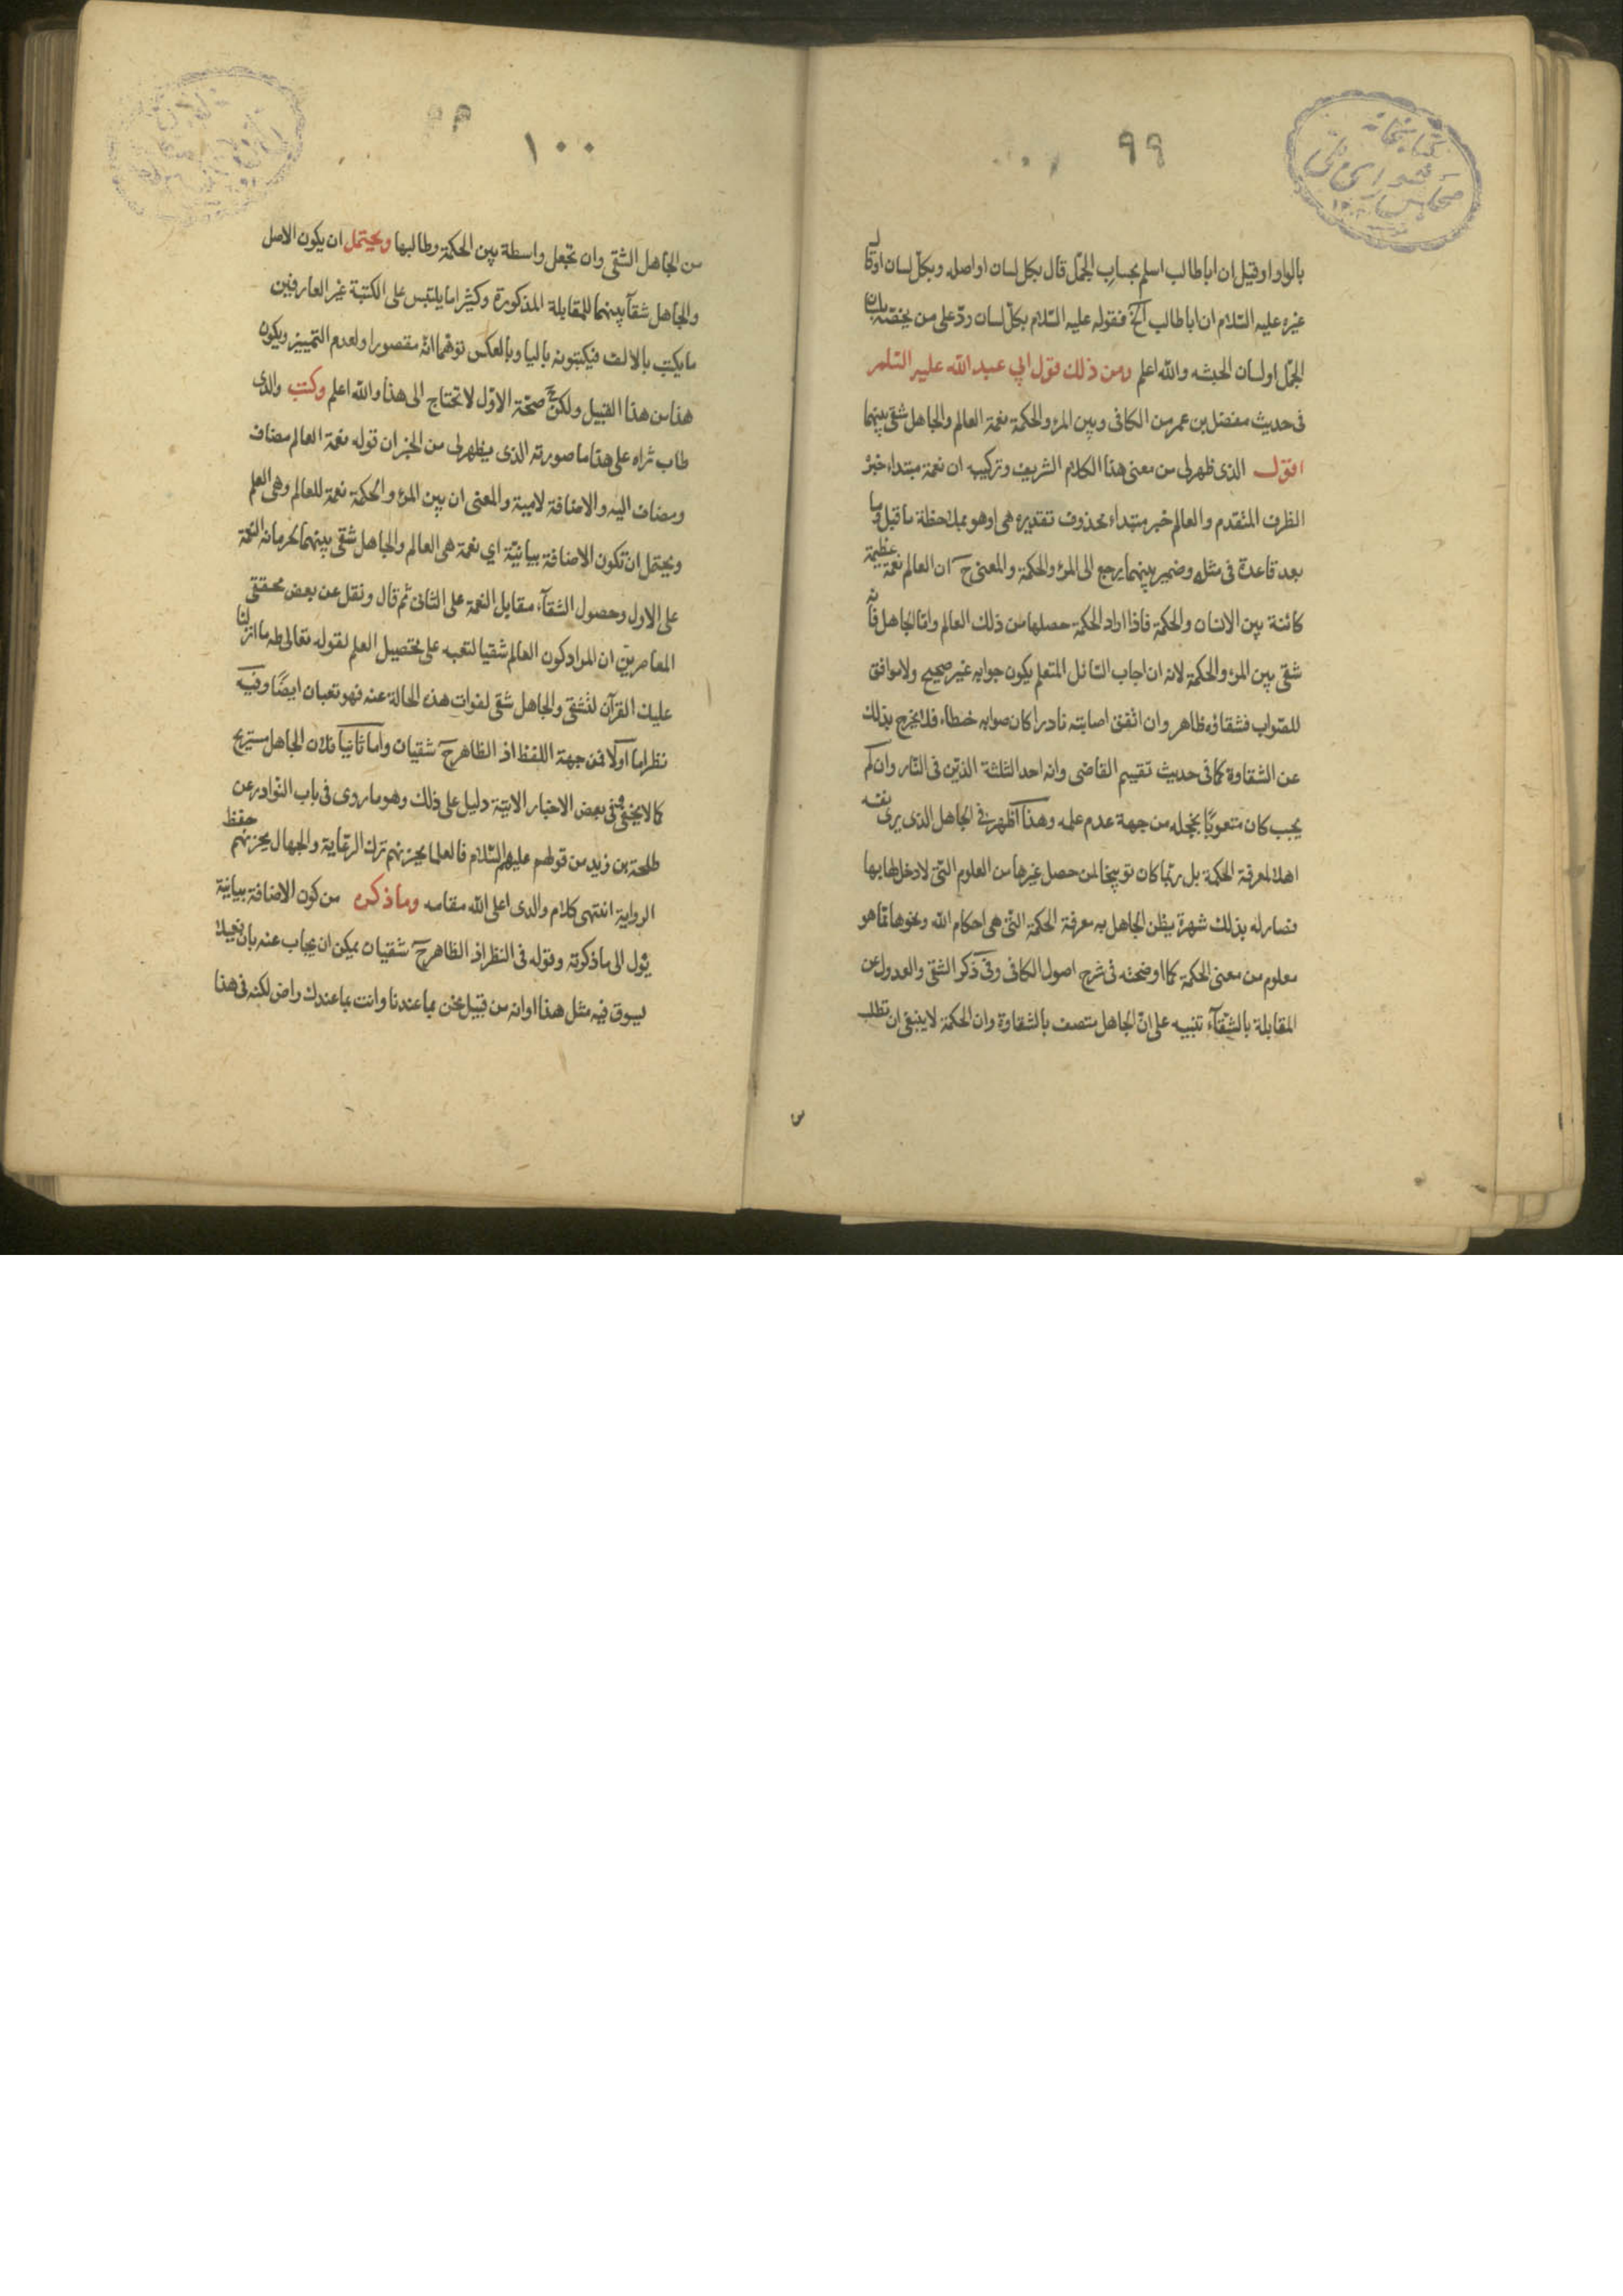 ٩٩
كتابخانه
مجلس شورای ملی
بالواو او قيل ان ابا طالب اسلم بحساب الجمّل قال بكل لسان او اصله وبكلّ لسان او قال
غيره عليه السّلام ان ابا طالب آلخ فقوله عليه السّلام بكلّ لسان ردّ على من يخصّه بلسان
الجمّل او لسان الحبشه والله اعلم ومن ذلك قول ابي عبد الله عليه السّلم
فى حديث مفضل بن عمر من الكافى وبين المرء والحكمة نعمة العالم والجاهل شقى بينهما
اقول الذى ظهر لى من معنى هذا الكلام الشريف وتركيبه ان نعمة مبتداء خبره
الظرف المتقدم والعالم خبر مبتداء محذوف تقديره هى او هو بملاحظة ما قبل وما
بعد قاعدة فى مثله وضمير بينهما يرجع الى المرء والحكمة والمعنى ح ان العالم نعمة عظيمة
كائنة بين الانسان والحكمة فاذا اراد الحكمة حصلها من ذلك العالم وامّا الجاهل فانه
شقى بين المرء والحكمة لانه ان اجاب السّائل المتعلم يكون جوابه غير صحيح ولا موافق
للصّواب فشقاؤه ظاهر وان اتّفق اصابته نادرا كان صوابه خطاء فلا يخرج بذلك
عن الشقاوة كما فى حديث تقسيم القاضى وانه احد الثلثة الذين فى النّار وان لم
يجب كان متعوبًا بخجله من جهة عدم علمه وهذا اظهر فى الجاهل الذى يرى نفسه
اهلا لمعرفة الحكمة بل ربّما كان توبيخا لمن حصل غيرها من العلوم التى لا دخل لها بها
فصار له بذلك شهرة يظن الجاهل به معرفة الحكمة التى هى احكام الله ونحوها ممّا هو
معلوم من معنى الحكمة كما اوضحته فى شرح اصول الكافى وفى ذكر الشقى والعدول عن
المقابلة بالشّقآء تنبيه على انّ الجاهل متصف بالشقاوة وان الحكمة لا ينبغى ان تطلب
١٠٠
من الجاهل الشقى وان تجعل واسطة بين الحكمة وطالبها ويحتمل ان يكون الاصل
والجاهل شقآء بينهما للمقابلة المذكورة وكثيرا ما يلتبس على الكتبة غير العارفين
ما يكتب بالالف فيكتبونه باليا وبالعكس توهّما انّه مقصور او لعدم التمييز ويكون
هذا من هذا القبيل ولكن مع صحّة الاوّل لا تحتاج الى هذا والله اعلم وكتب والدى
طاب ثراه على هذا ما صورته الذى يظهر لى من الخبر ان قوله نعمة العالم مضاف
ومضاف اليه والاضافة لامية والمعنى ان بين المرء والحكمة نعمة للعالم وهى العلم
ويحتمل ان تكون الاضافة بيانيّة اي نعمة هى العالم والجاهل شقى بينهما لحرمانه النعمة
على الاول وحصول الشقآء مقابل النعمة على الثانى ثم قال ونقل عن بعض محققى
المعاصرين ان المراد كون العالم شقيا لتعبه على تحصيل العلم لقوله تعالى طه ما انزلنا
عليك القرآن لتشقى والجاهل شقى لفوات هذه الحالة عنه فهو تعبان ايضًا وفيه
نظر اما اوّلا فمن جهة اللفظ اذ الظاهر ح شقيان وامّا ثانيا فلان الجاهل مستريح
كما لا يخفى وفى بعض الاخبار الاتية دليل على ذلك وهو ما روى فى باب النّوادر عن
طلحة بن زيد من قولهم عليهم السّلام فالعلما يحزنهم ترك الرّعاية والجهال يحزنهم حفظ
الرواية انتهى كلام والدى اعلى الله مقامه وما ذكره من كون الاضافة بيانيّة
يؤل الى ما ذكرته وقوله فى النظر اذ الظاهر ح شقيان يمكن ان يجاب عنه بان فعيلا
يسوق فيه مثل هذا او انه من قبيل نحن بما عندنا وانت بما عندك راض لكنه فى هذا